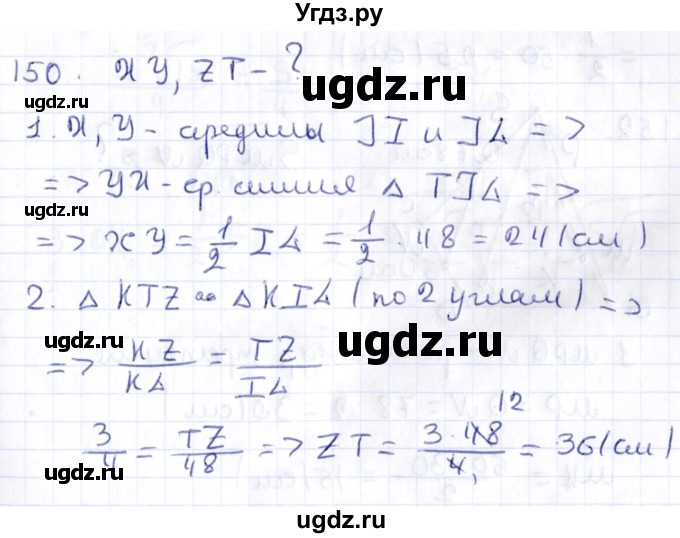 Угдз.ру
150. XY, ZT - ?
1. X, Y - средины JI и JL =>
=> YX - ср. линия △ IJL =>
=> XY = 1/2 IL = 1/2 · 48 = 24 (см)
2. △ KTZ ∾ △ KIL (по 2 углам) =>
=> KZ/KL = TZ/IL
3/4 = TZ/48 => ZT = 3 · 48/4 = 36 (см)
12
1
ugdz.ru
ugdz.ru
ugdz.ru
ugdz.ru
ugdz.ru
ugdz.ru
ugdz.ru
ugdz.ru
ugdz.ru
ugdz.ru